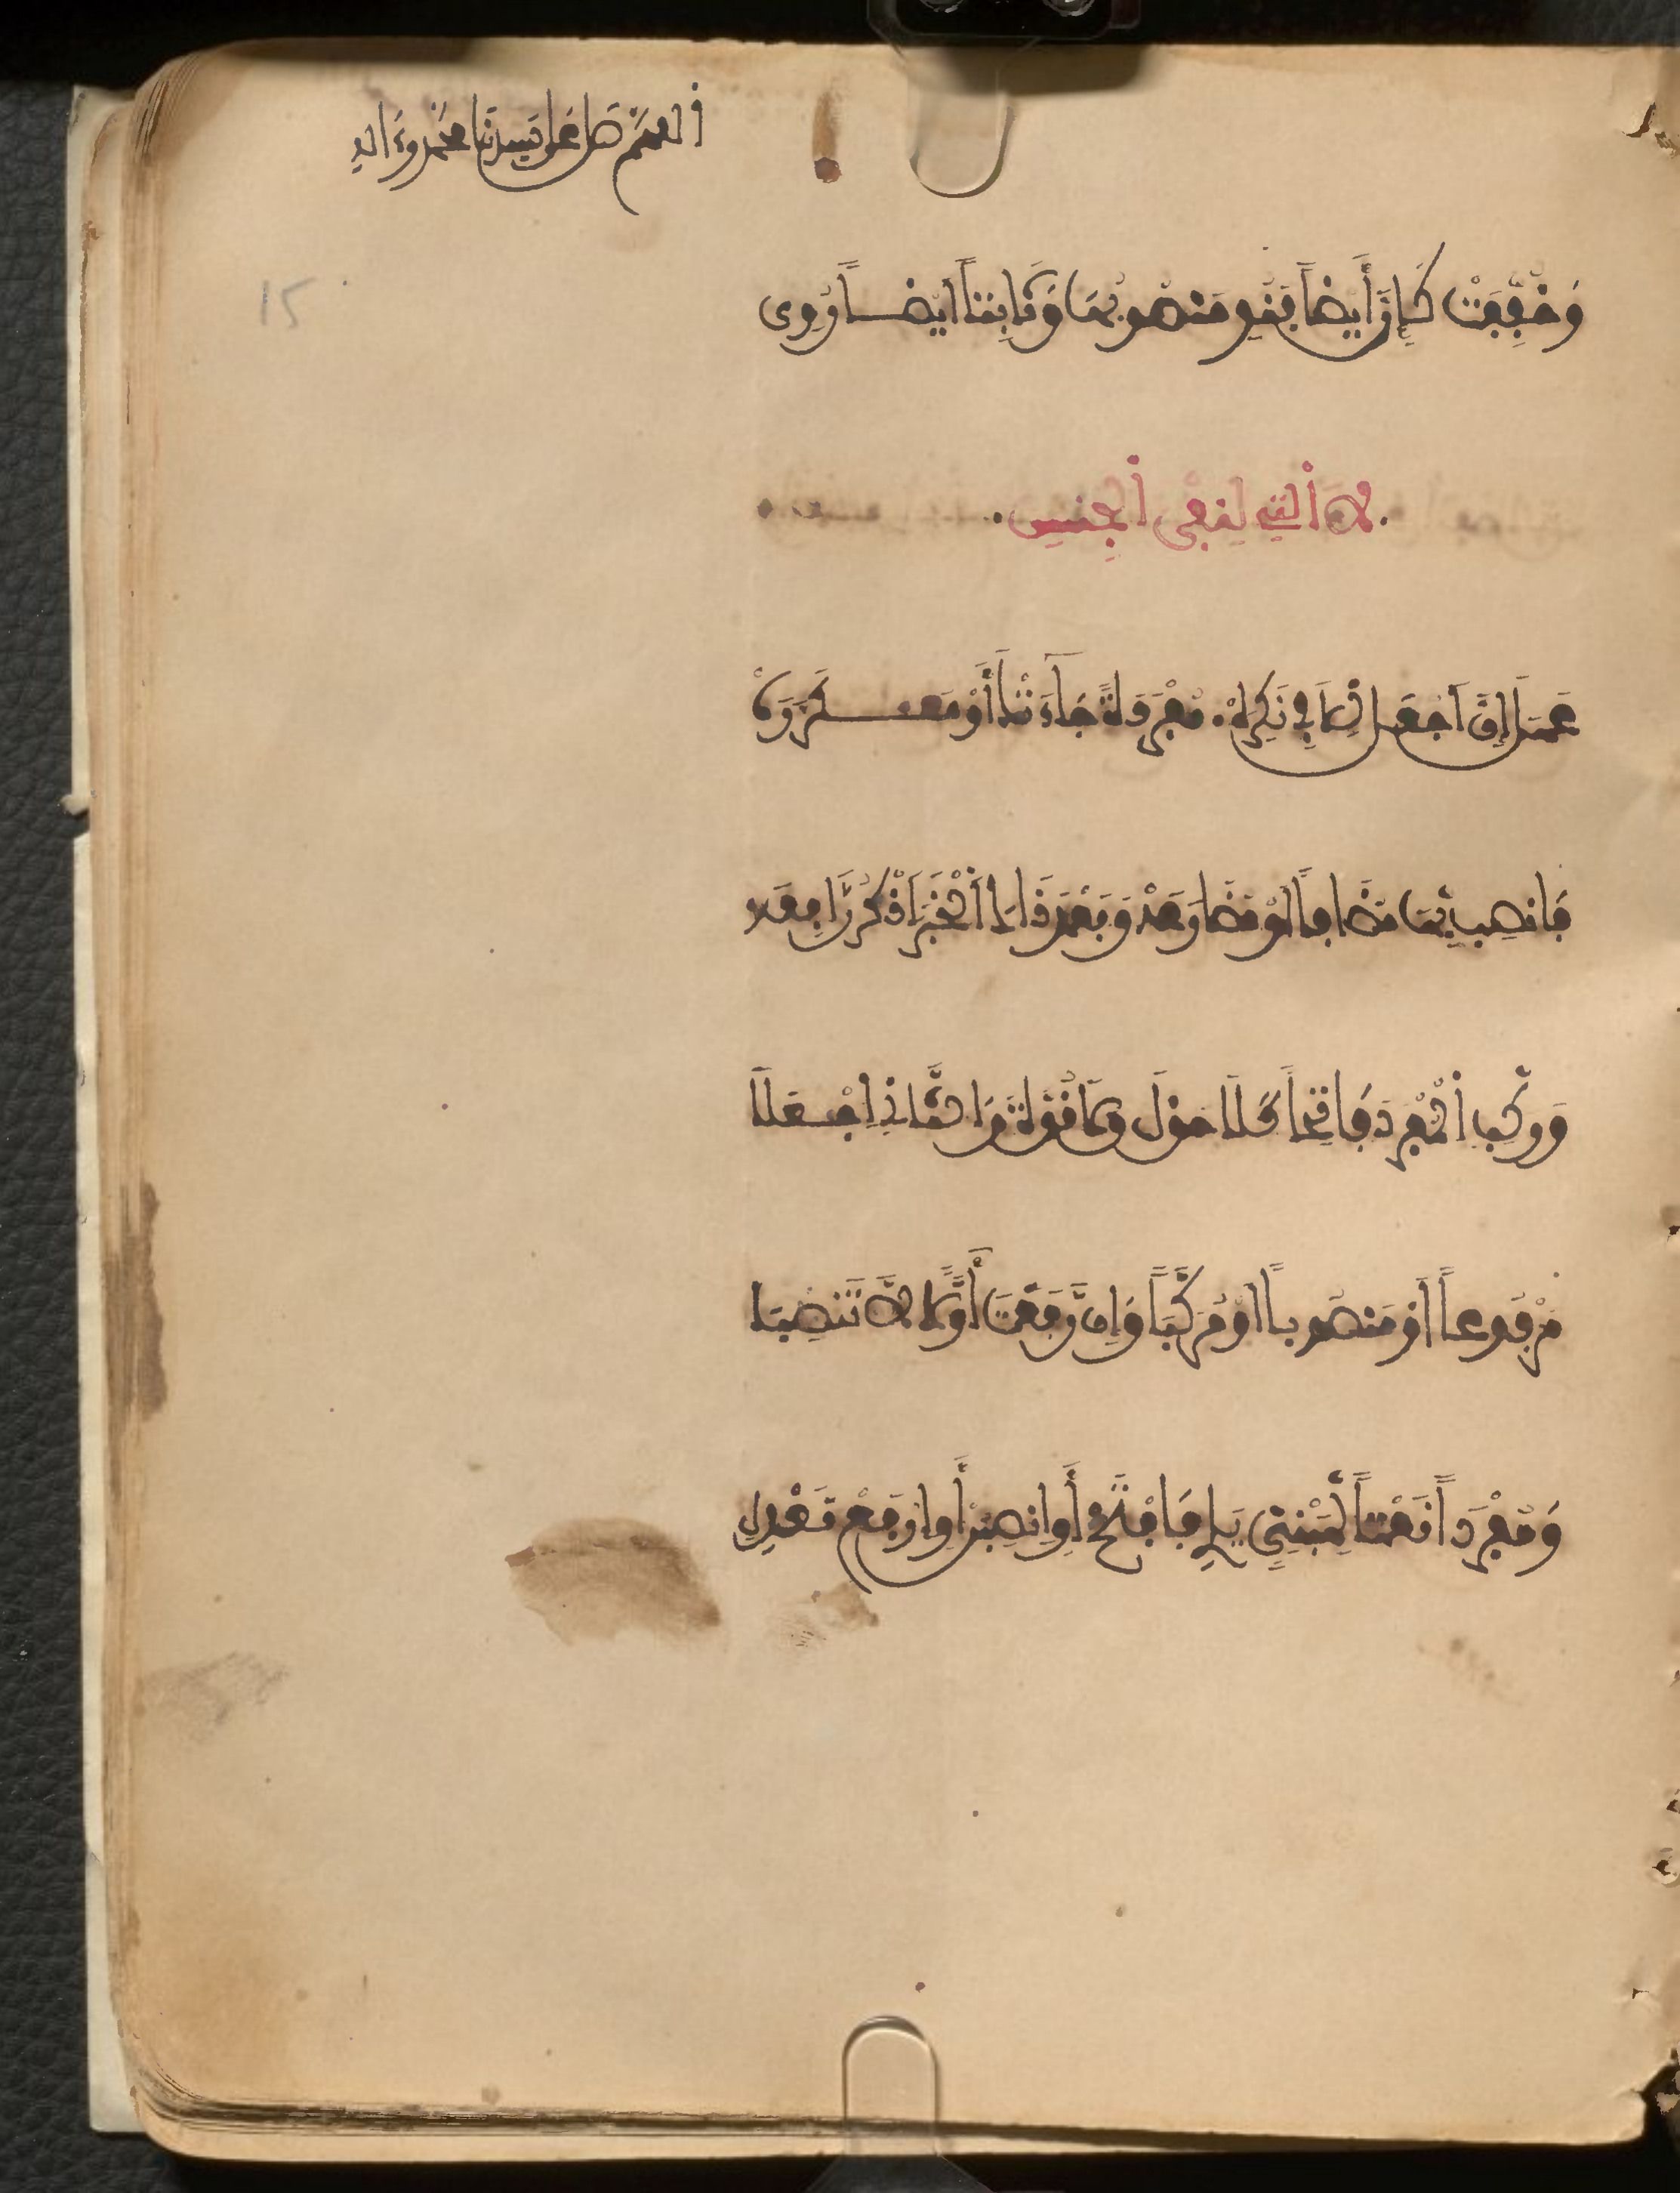 اللهم صل على سيدنا محمد وءاله
١٥
وَخُفِّفَتْ كَأَنَّ أَيْضاً فَنُوِي مَنْصُوبُهَا وَثَابِتاً أَيْضاً رُوِي
لاَ الَّتِي لِنَفْيِ الْجِنْسِ
عَمَلَ إِنَّ اَجْعَل لِّلاَ فِي نَكِرَهْ مُفْرَدَةً جَاءَتْكَ أَوْ مُكَرَّرَهْ
فَانْصِبْ بِهَا مُضَافاً اَوْ مُضَارِعَهْ وَبَعْدَ ذَاكَ الْخَبَرَ اَذْكُرْ رَافِعَهْ
وَرَكِّبِ الْمُفْرَدَ فَاتِحاً كَلاَ حَوْلَ وَلاَ قُوَّةَ وَالثَّانِ اجْعَلاَ
مَرْفُوعاً اَوْ مَنْصُوباً اَوْ مُرَكَّبَا وَإِن رَّفَعْتَ أَوَّلاً لاَ تَنْصِبَا
وَمُفْرَداً نَعْتاً لِّمَبْنِيٍّ يَلِي فَافْتَحْ أَوِ انْصِبَنْ أَوِ ارْفَعْ تَعْدِلِ